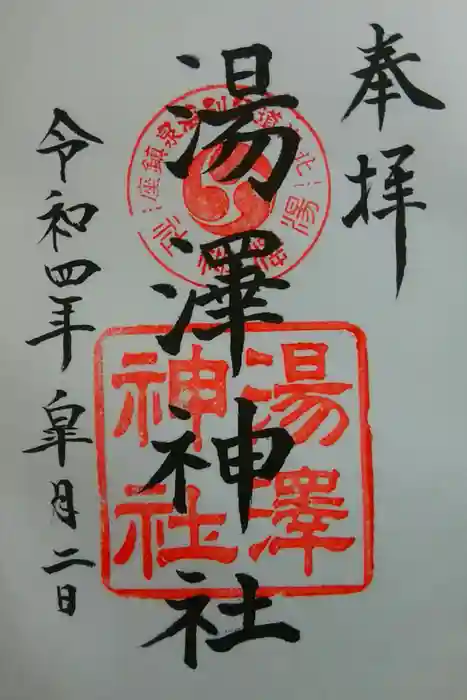 奉拝
湯澤神社
令和四年 皐月二日
泉鎮座
湯澤
神社